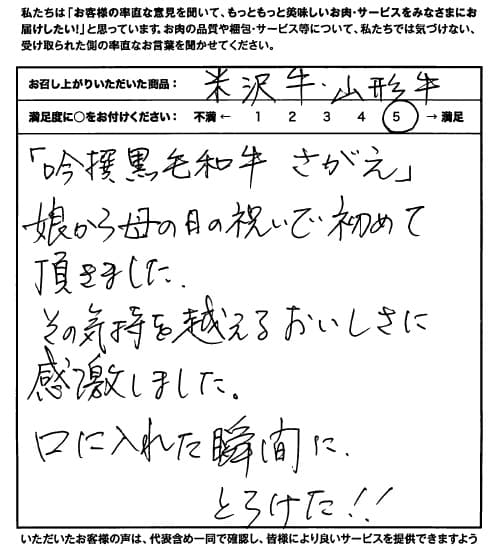 私たちは「お客様の率直な意見を聞いて、もっともっと美味しいお肉・サービスをみなさまにお
届けしたい!」と思っています。お肉の品質や梱包・サービス等について、私たちでは気づけない、
受け取られた側の率直なお言葉を聞かせてください。
お召し上がりいただいた商品： 米沢牛・山形牛
満足度に○をお付けください： 不満 ← 1 2 3 4 5 → 満足
「吟撰黒毛和牛 さがえ」
娘から母の日の祝いで初めて
頂きました.
その気持を越えるおいしさに
感激しました。
口に入れた瞬間に.
とろけた!!
いただいたお客様の声は、代表含め一同で確認し、皆様により良いサービスを提供できますよう